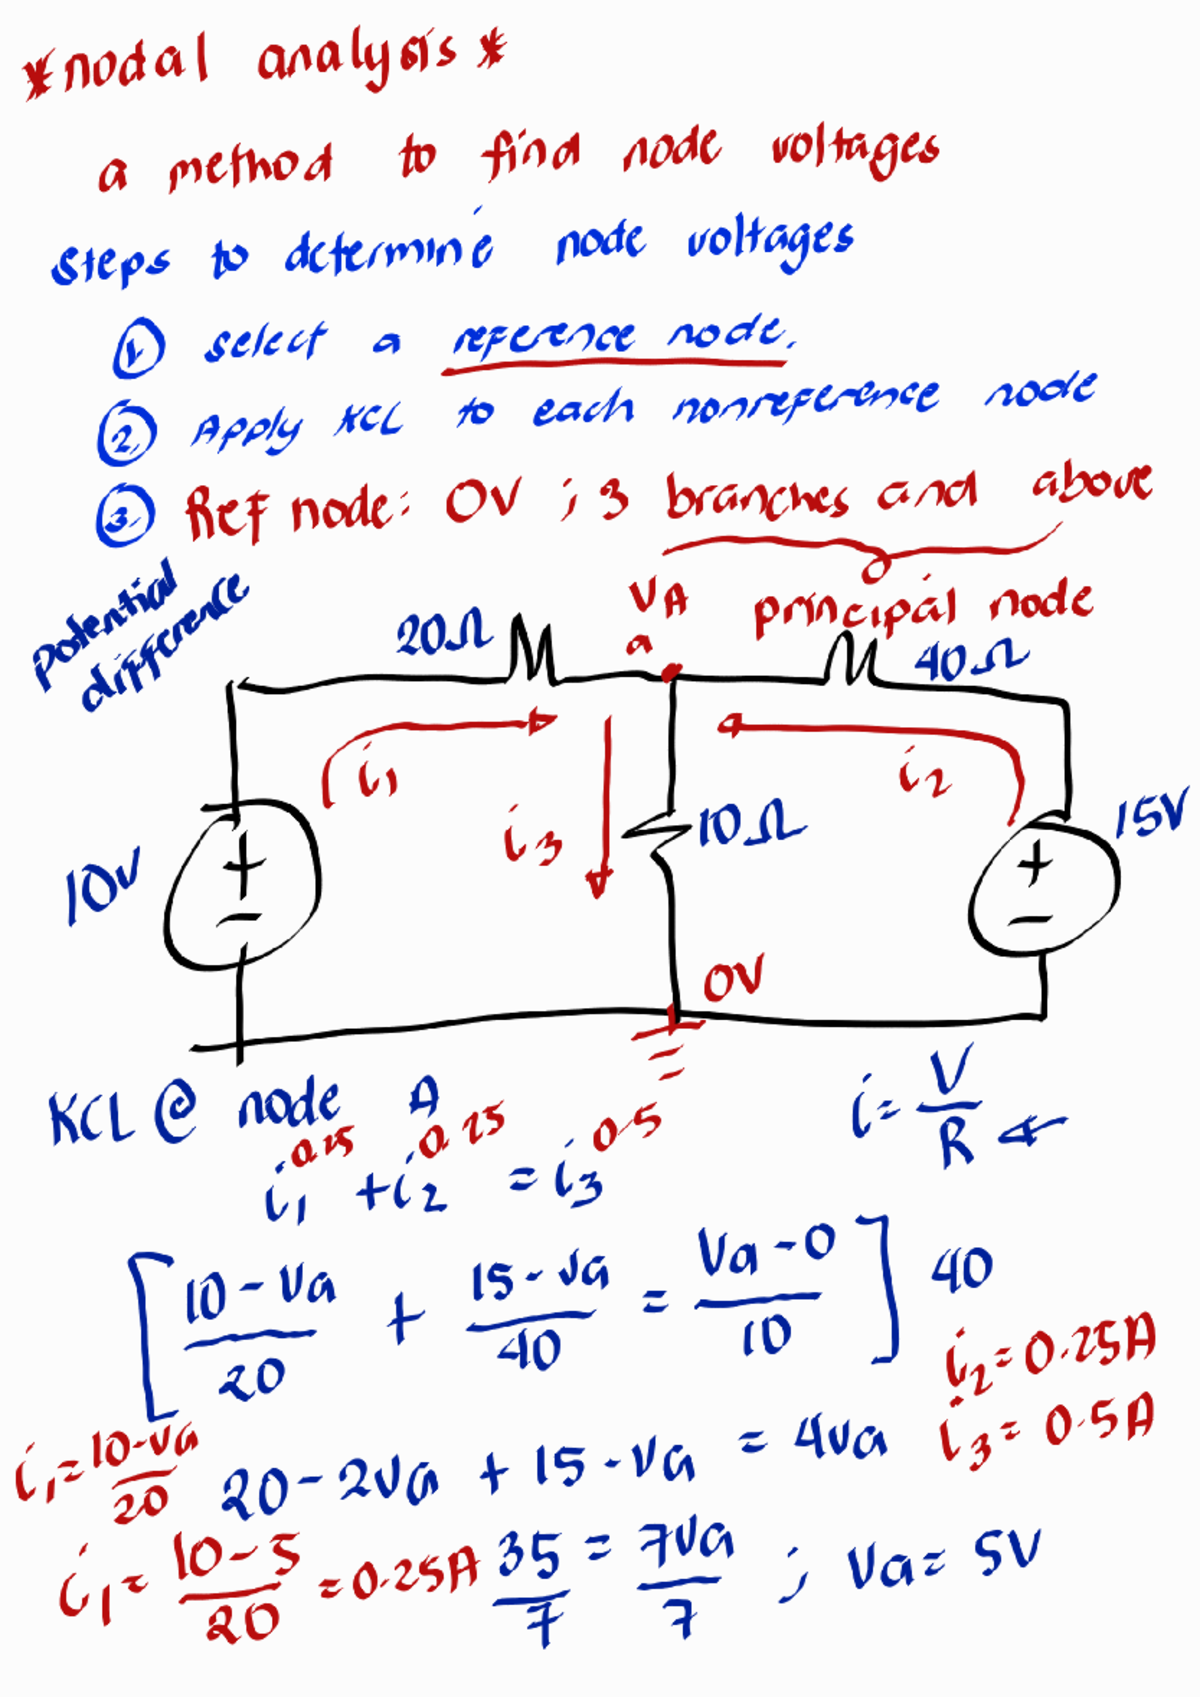 *nodal analysis*
a method to find node voltages
steps to determine node voltages
① select a reference node.
② Apply KCL to each nonreference node
③ Ref node: 0V ; 3 branches and above
principal node
Potential
difference
VA
a
20Ω
40Ω
i1
i2
i3
10Ω
10V
15V
0V
KCL @ node A
i = V/R ←
i1 0.25 + i2 0.25 = i3 0.5
[ (10 - Va)/20 + (15 - Va)/40 = (Va - 0)/10 ] 40
i2 = 0.25A
i3 = 0.5A
i1 = (10 - Va)/20
20 - 2Va + 15 - Va = 4Va
i1 = (10 - 5)/20 = 0.25A
35/7 = 7Va/7 ; Va = 5V